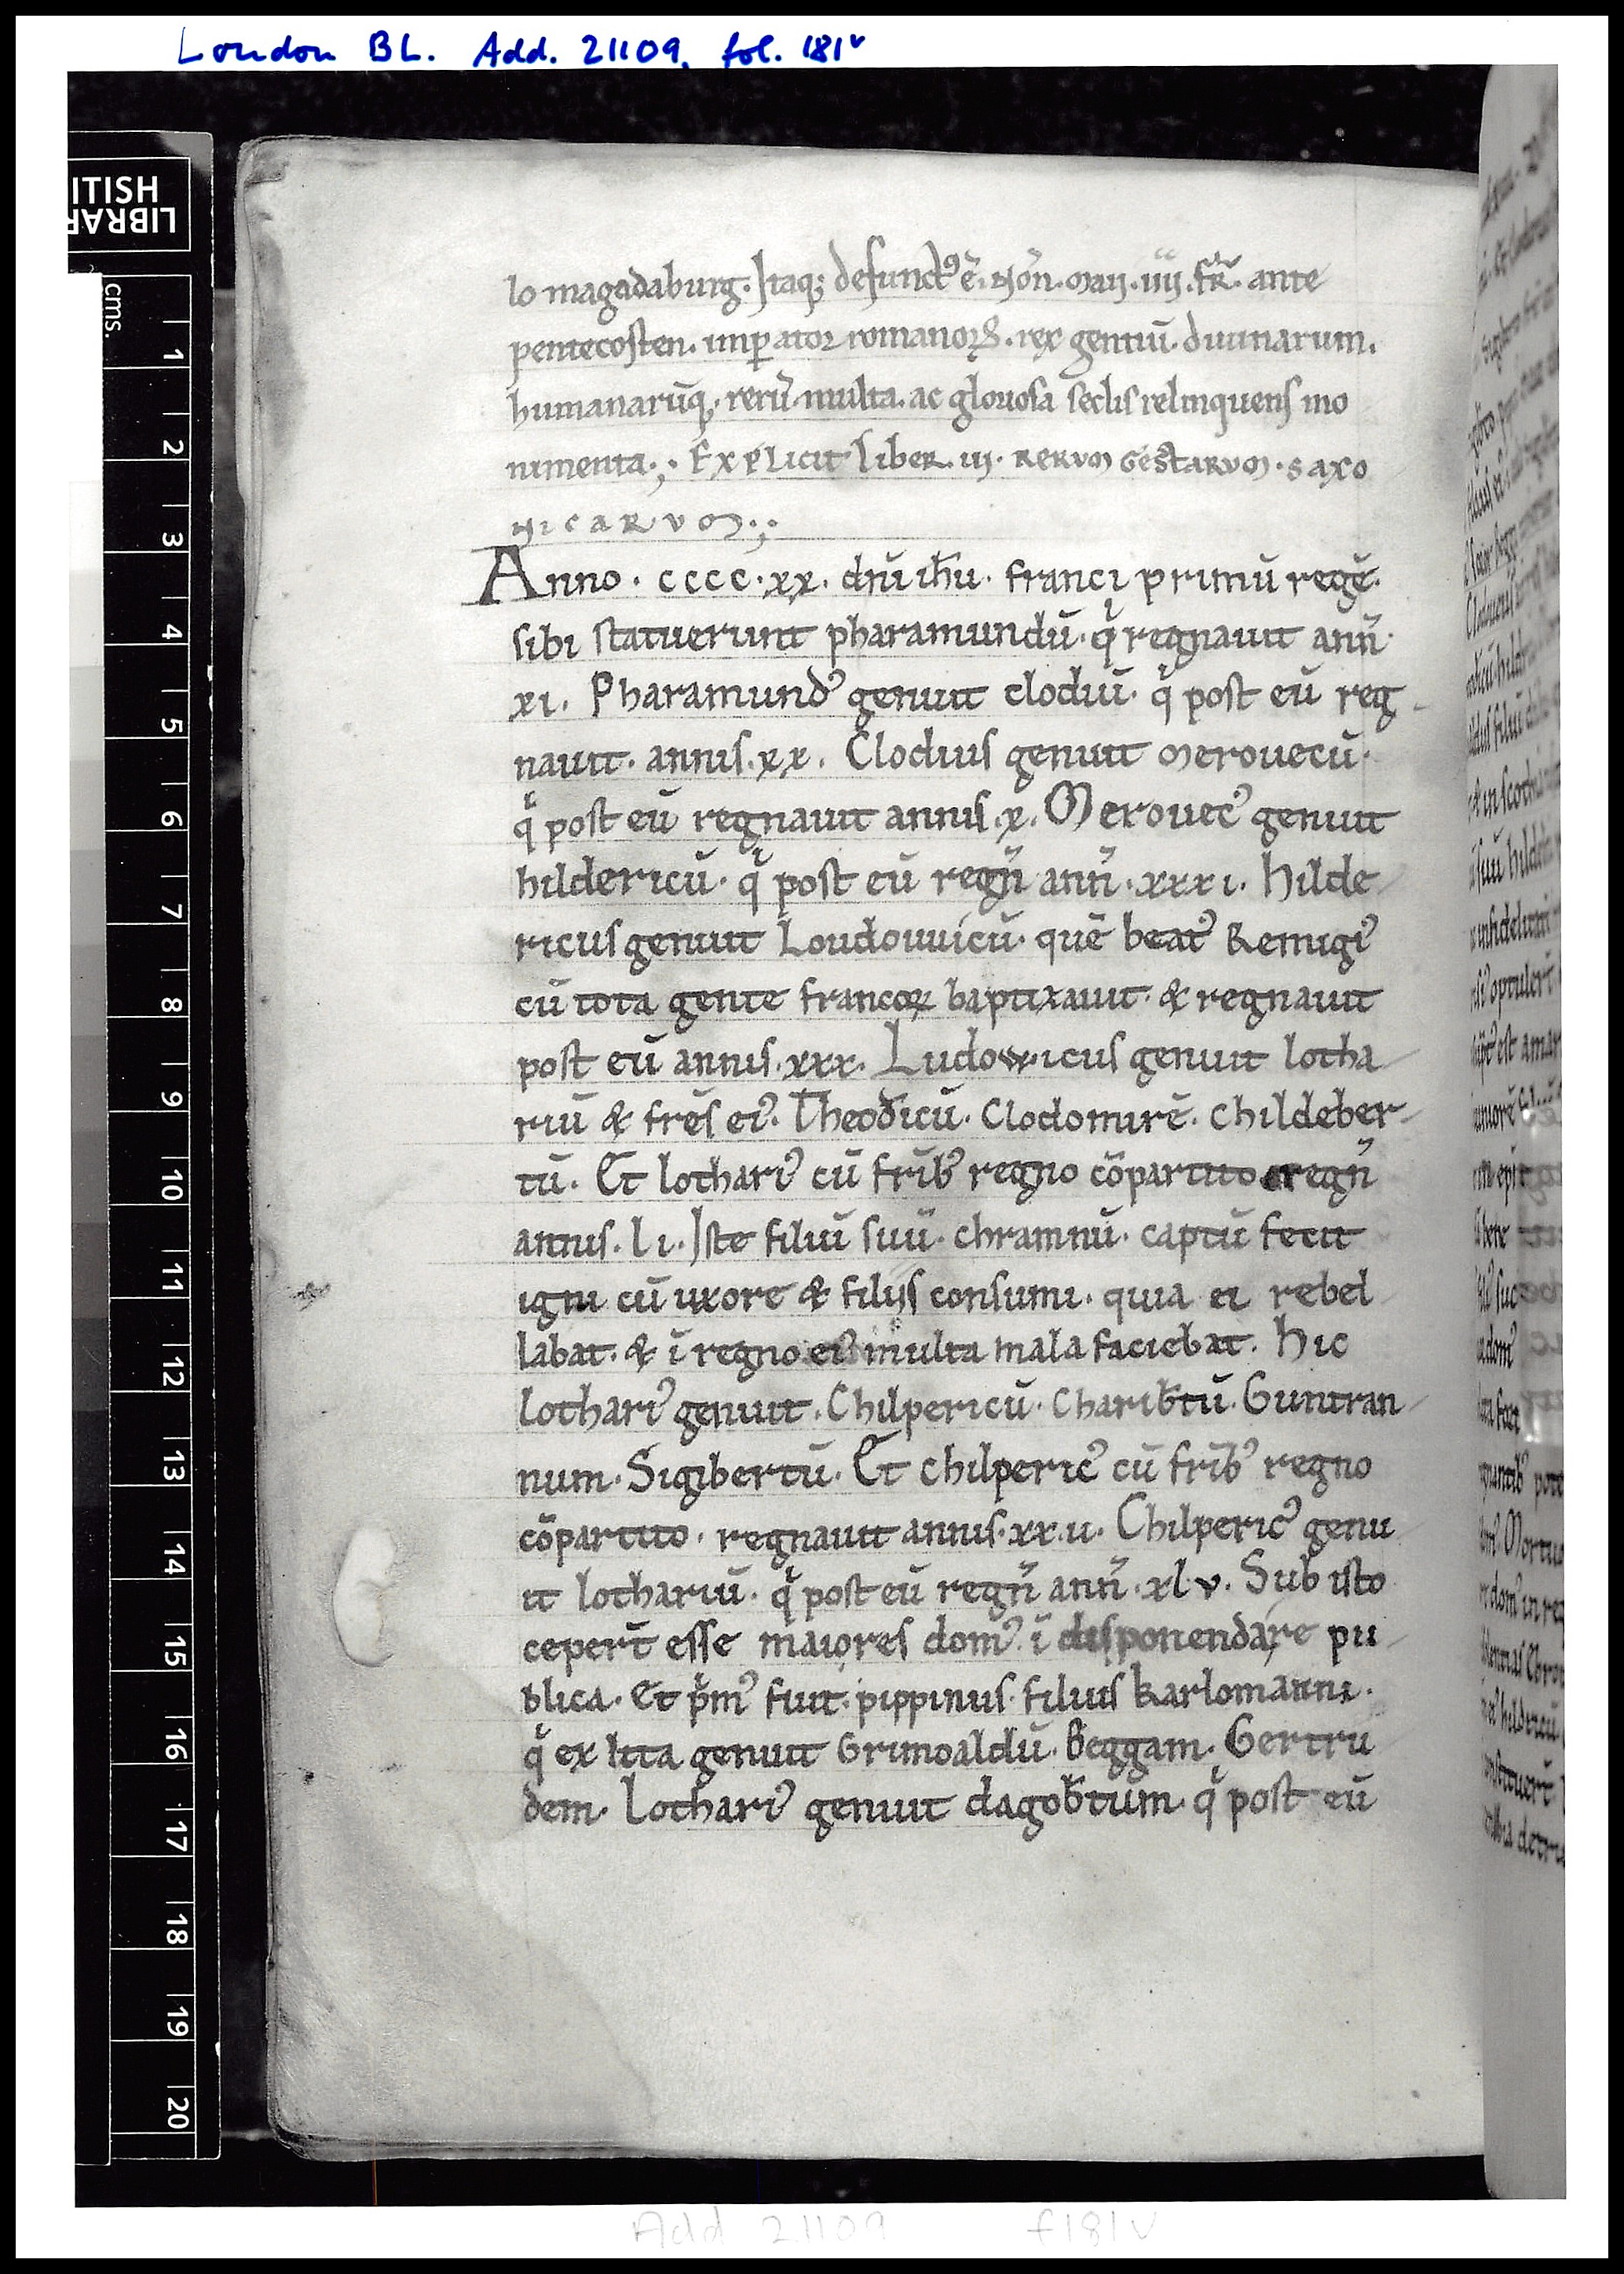 London BL. Add. 21109, fol. 181v
ITISH
LIBRAR
cms.
1
2
3
4
5
6
7
8
9
10
11
12
13
14
15
16
17
18
19
20
lo magadaburg. Itaq; defunct⁹ ē. Nōn. Maii. iiii. fr̄. ante
pentecosten. imp̄ator romanoꝝ. rex gentiū. diuinarum.
humanarūq; rerū multa. ac gloriosa sēclis relinquens mo
nimenta.; Explicit liber. iii. rerum gestarum. saxo
nicarum.;
Anno. cccc. xx. dn̄i ih̄u. franci primū regē.
sibi statuerunt pharamundū. qͥ regnauit ann̄.
xi. Pharamund⁹ genuit clodiū. qͥ post eū reg
nauit. annis. xx. Clodius genuit merouecū.
qͥ post eū regnauit annis. x. Merouec⁹ genuit
hildericū. qͥ post eū regn̄ ann̄. xxxi. Hilde
ricus genuit Loudouuicū. quē beat⁹ Remigi⁹
cū tota gente francoꝝ baptixauit. & regnauit
post eū annis. xxx. Ludowicus genuit lotha
riū & frēs ei⁹. Theodͥicū. Clodomirē. Childeber
tū. Et lothari⁹ cū frīb⁹ regno cōpartito regn̄
annis. li. Iste filiū suū. chramnū. captū fecit
igni cū uxore & filiis consumi. quia ei rebel
labat. & ī regno ei⁹ multa mala faciebat. Hic
lothari⁹ genuit. Chilpericū. Charib̄tū. Guntran
num. Sigibertū. Et chilperic⁹ cū frīb⁹ regno
cōpartito. regnauit annis. xx.u. Chilperic⁹ genu
it lothariū. qͥ post eū regn̄ ann̄. xlv. Sub isto
ceper̄t esse maiores dom⁹. ī disponenda re pu
blica. Et pͥm⁹ fuit. pippinus. filius karlomanni.
qͥ ex Itta genuit Grimoaldū. Beggam. Gertru
dem. Lothari⁹ genuit dagob̄tum. qͥ post eū
Add 21109 f181v